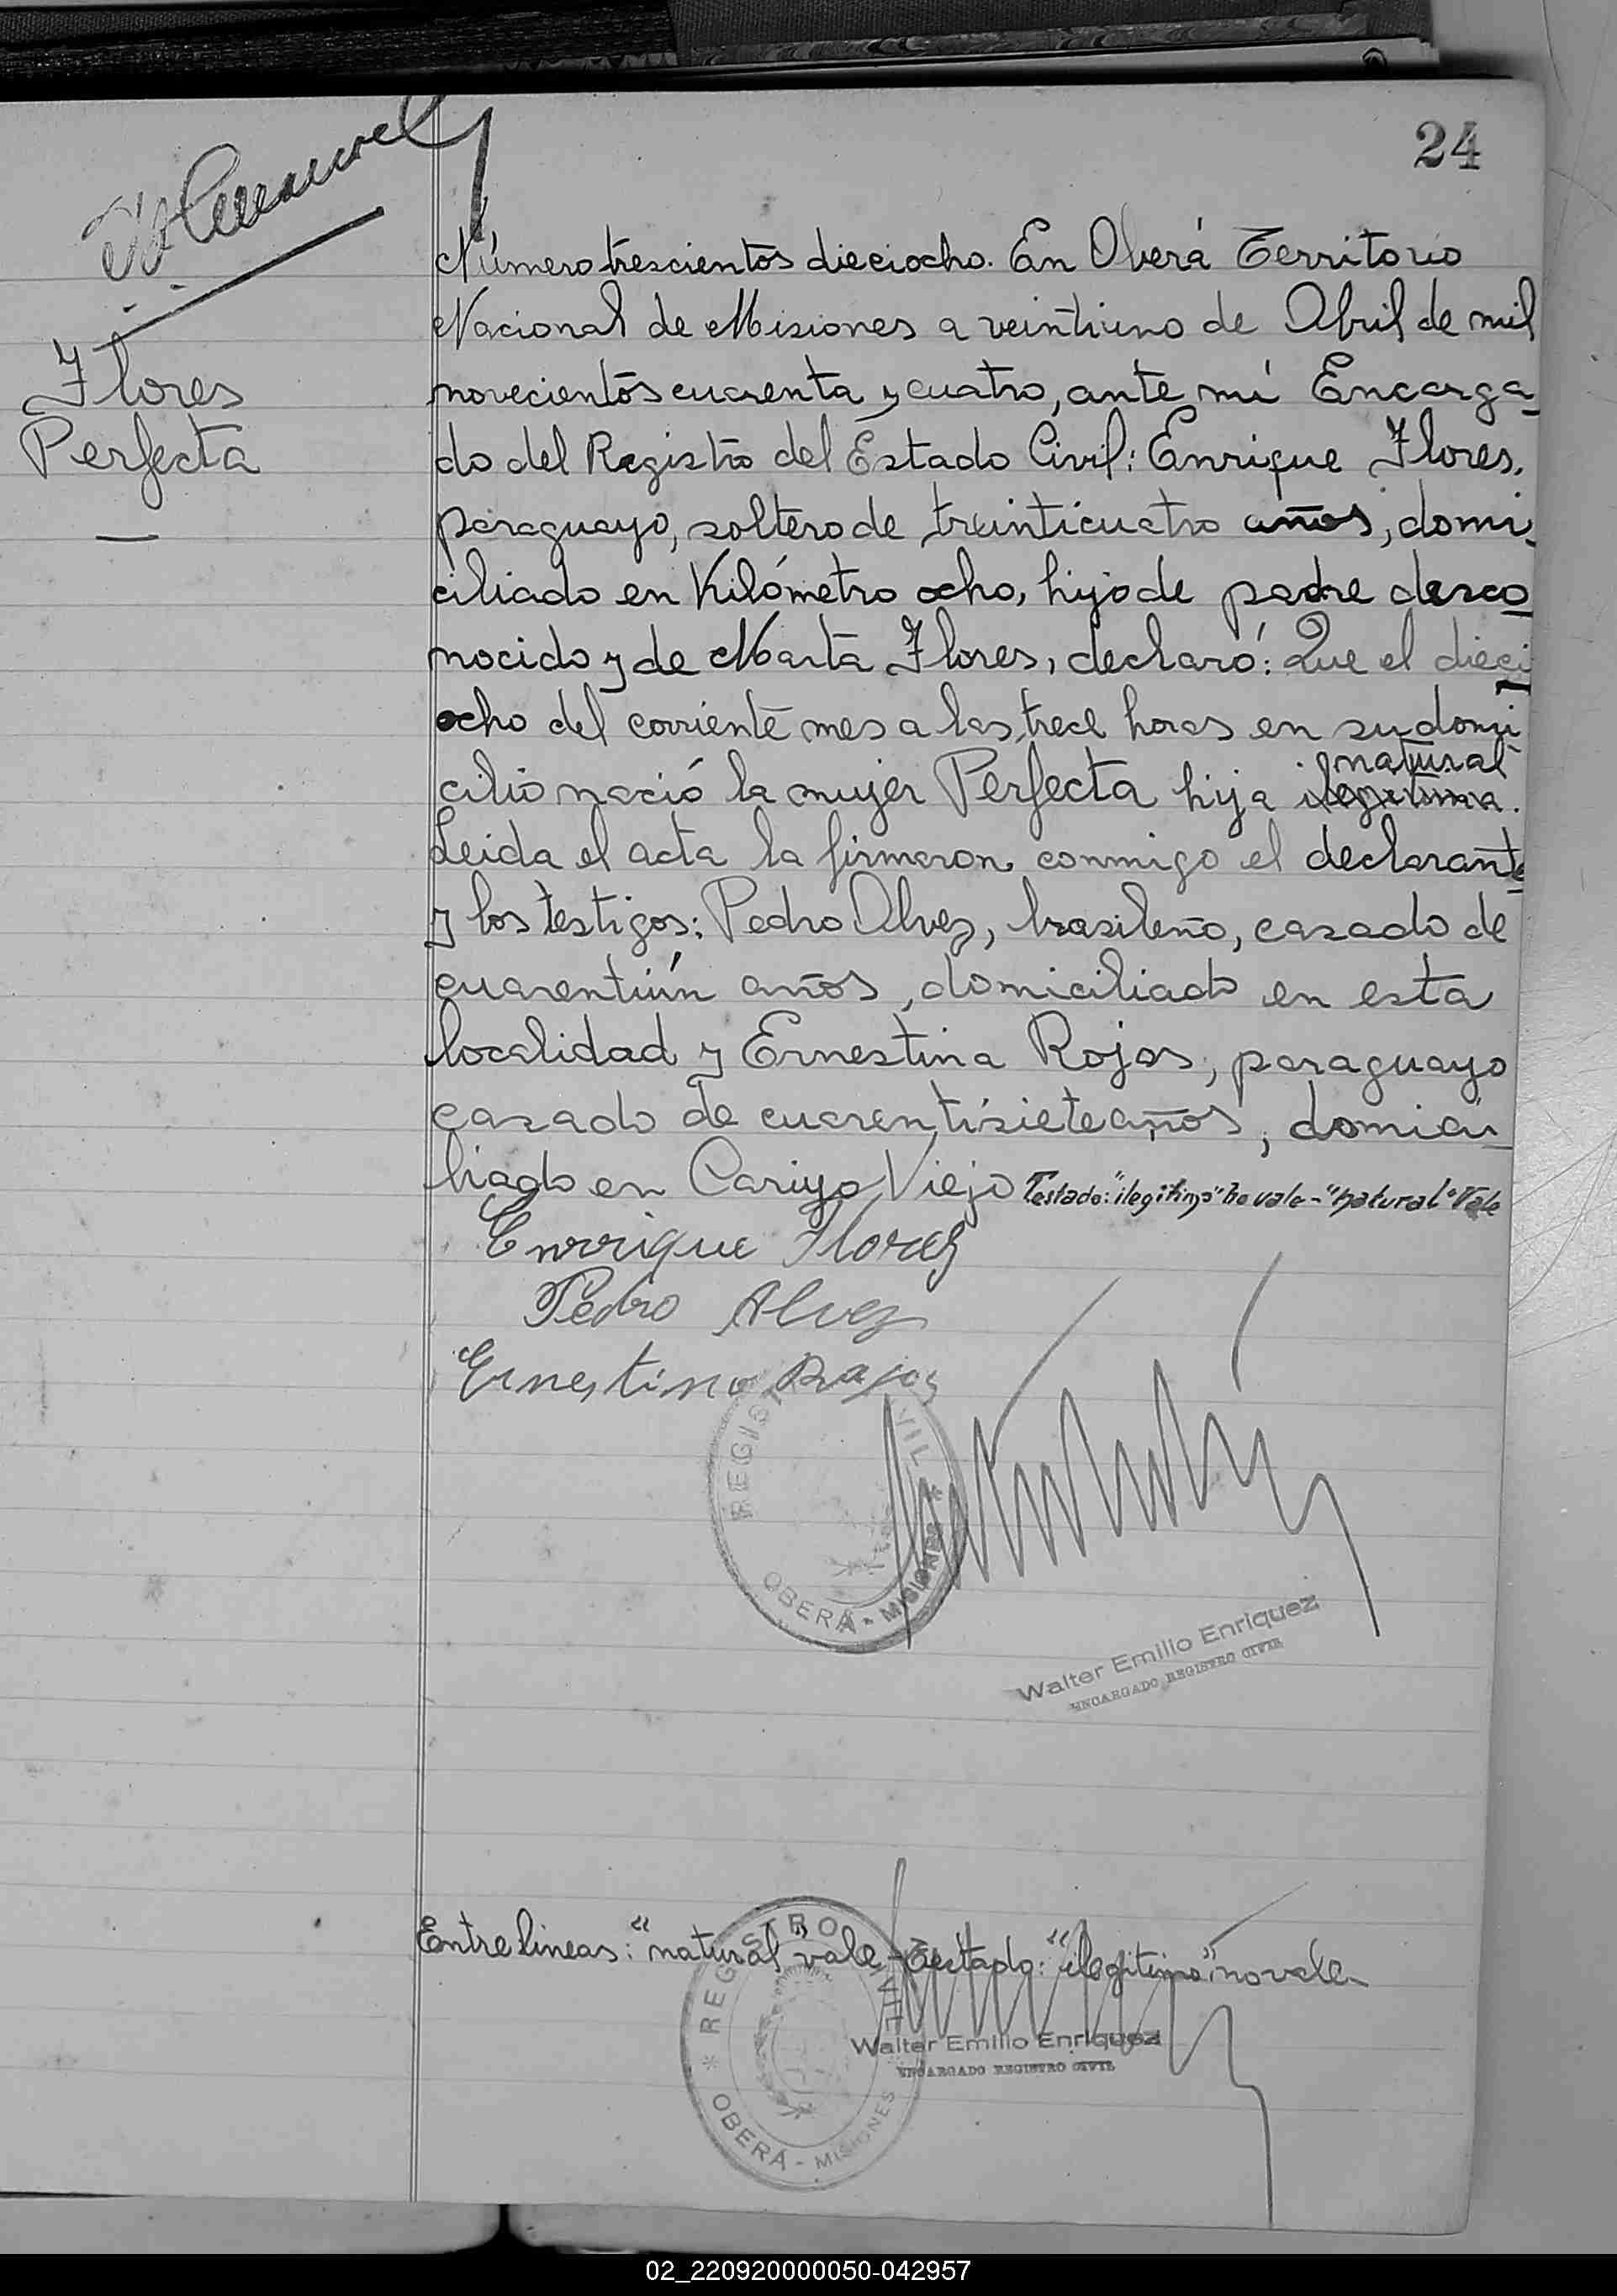 24
Flores
Perfecta
Número trescientos dieciocho. En Oberá Territorio
Nacional de Misiones a veintiuno de Abril de mil
novecientos cuarenta y cuatro, ante mí Encarga-
do del Registro del Estado Civil: Enrique Flores,
paraguayo, soltero de treinticuatro años, domi-
ciliado en Kilómetro ocho, hijo de padre desco-
nocido y de Marta Flores, declaró: Que el dieci-
ocho del corriente mes a las trece horas en su domi-
natural
cilio nació la mujer Perfecta hija ilegitima.
Leida el acta la firmaron conmigo el declarante
y los testigos: Pedro Alvez, brasileño, casado de
cuarentiún años, domiciliado en esta
localidad y Ernestina Rojas, paraguayo
casado de cuarentisiete años, domici-
liado en Cariyo Viejo Testado: "ilegitima" No vale - "natural" Vale
Enrrique Flores
Pedro Alvez
Ernestino Rajos
REGIST VIL
OBERÁ - MISIONES
Walter Emilio Enriquez
ENCARGADO REGISTRO CIVIL
Entre lineas: "natural" vale - Testado: "ilegitima" no vale-
REGISTRO CIVIL
Walter Emilio Enriquez
ENCARGADO REGISTRO CIVIL
OBERÁ - MISIONES
02_220920000050-042957